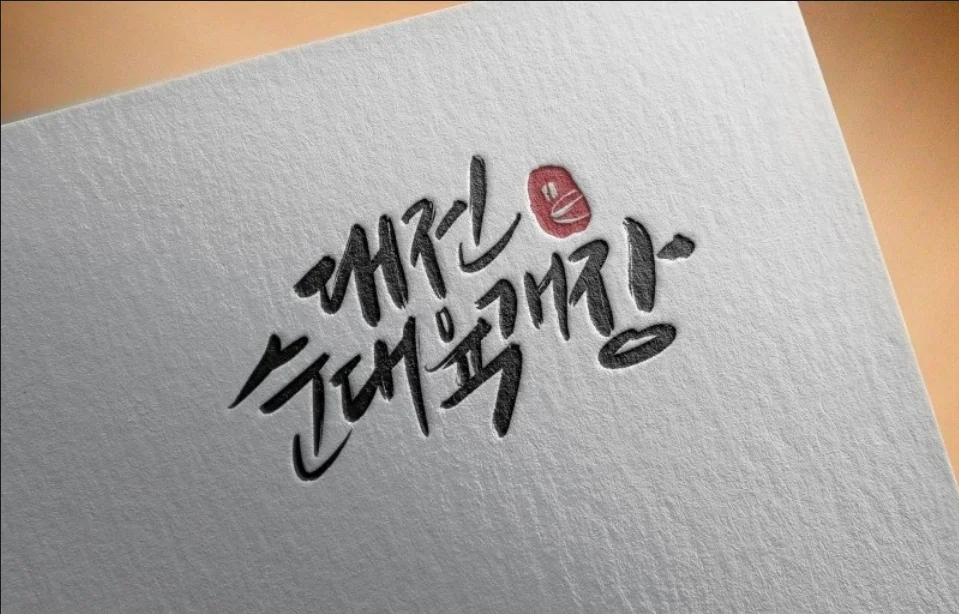 대전
순대육개장